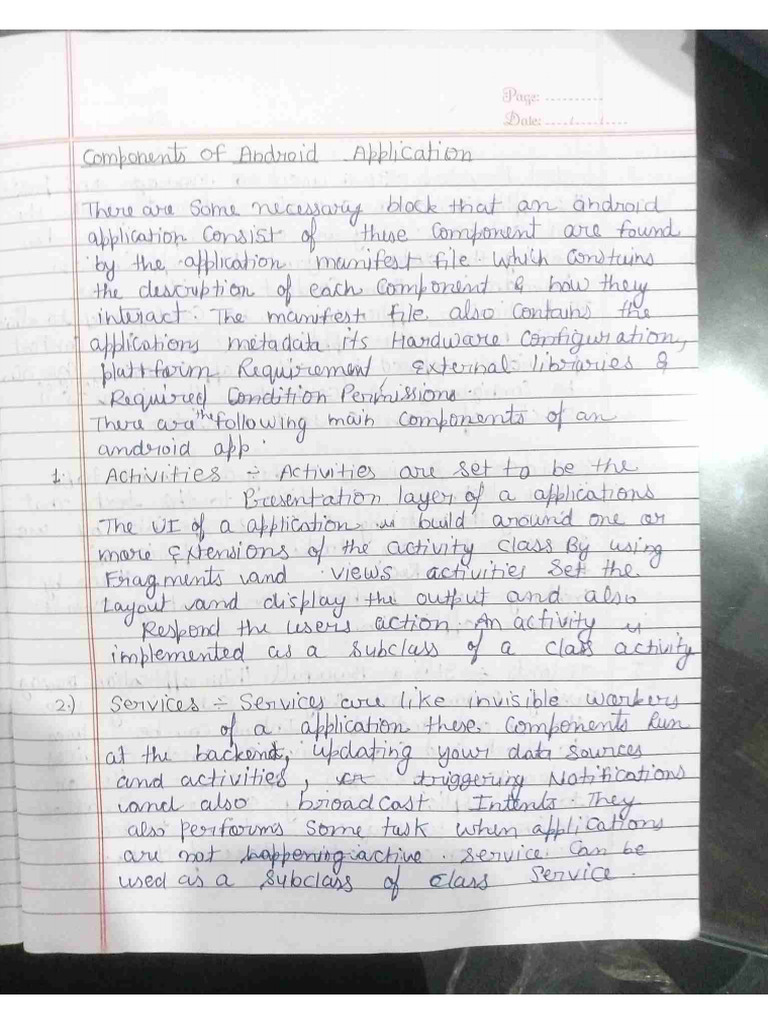 Page: ..........
Date: ..../..../....
Components of Android Application
There are some necessary block that an android
application consist of these component are found
by the application manifest file which constains
the description of each component & how they
interact. The manifest file also contains the
applications metadata its Hardware configuration,
plattform Requirement, External libraries &
Required Condition Permissions.
There are the following main components of an
android app.
1. Activities ÷ Activities are set to be the
Presentation layer of a applications
The UI of a application is build around one or
more Extensions of the activity class By using
Fragments and views activities set the
Layout and display the output and also
Respond the users action. An activity is
implemented as a subclass of a class activity
2.) Services ÷ Services are like invisible workers
of a application these components Run
at the backend, updating your data sources
and activities, triggering Notifications
and also broadcast Intents. They
also performs some task when applications
are not active. Service can be
used as a subclass of class Service.